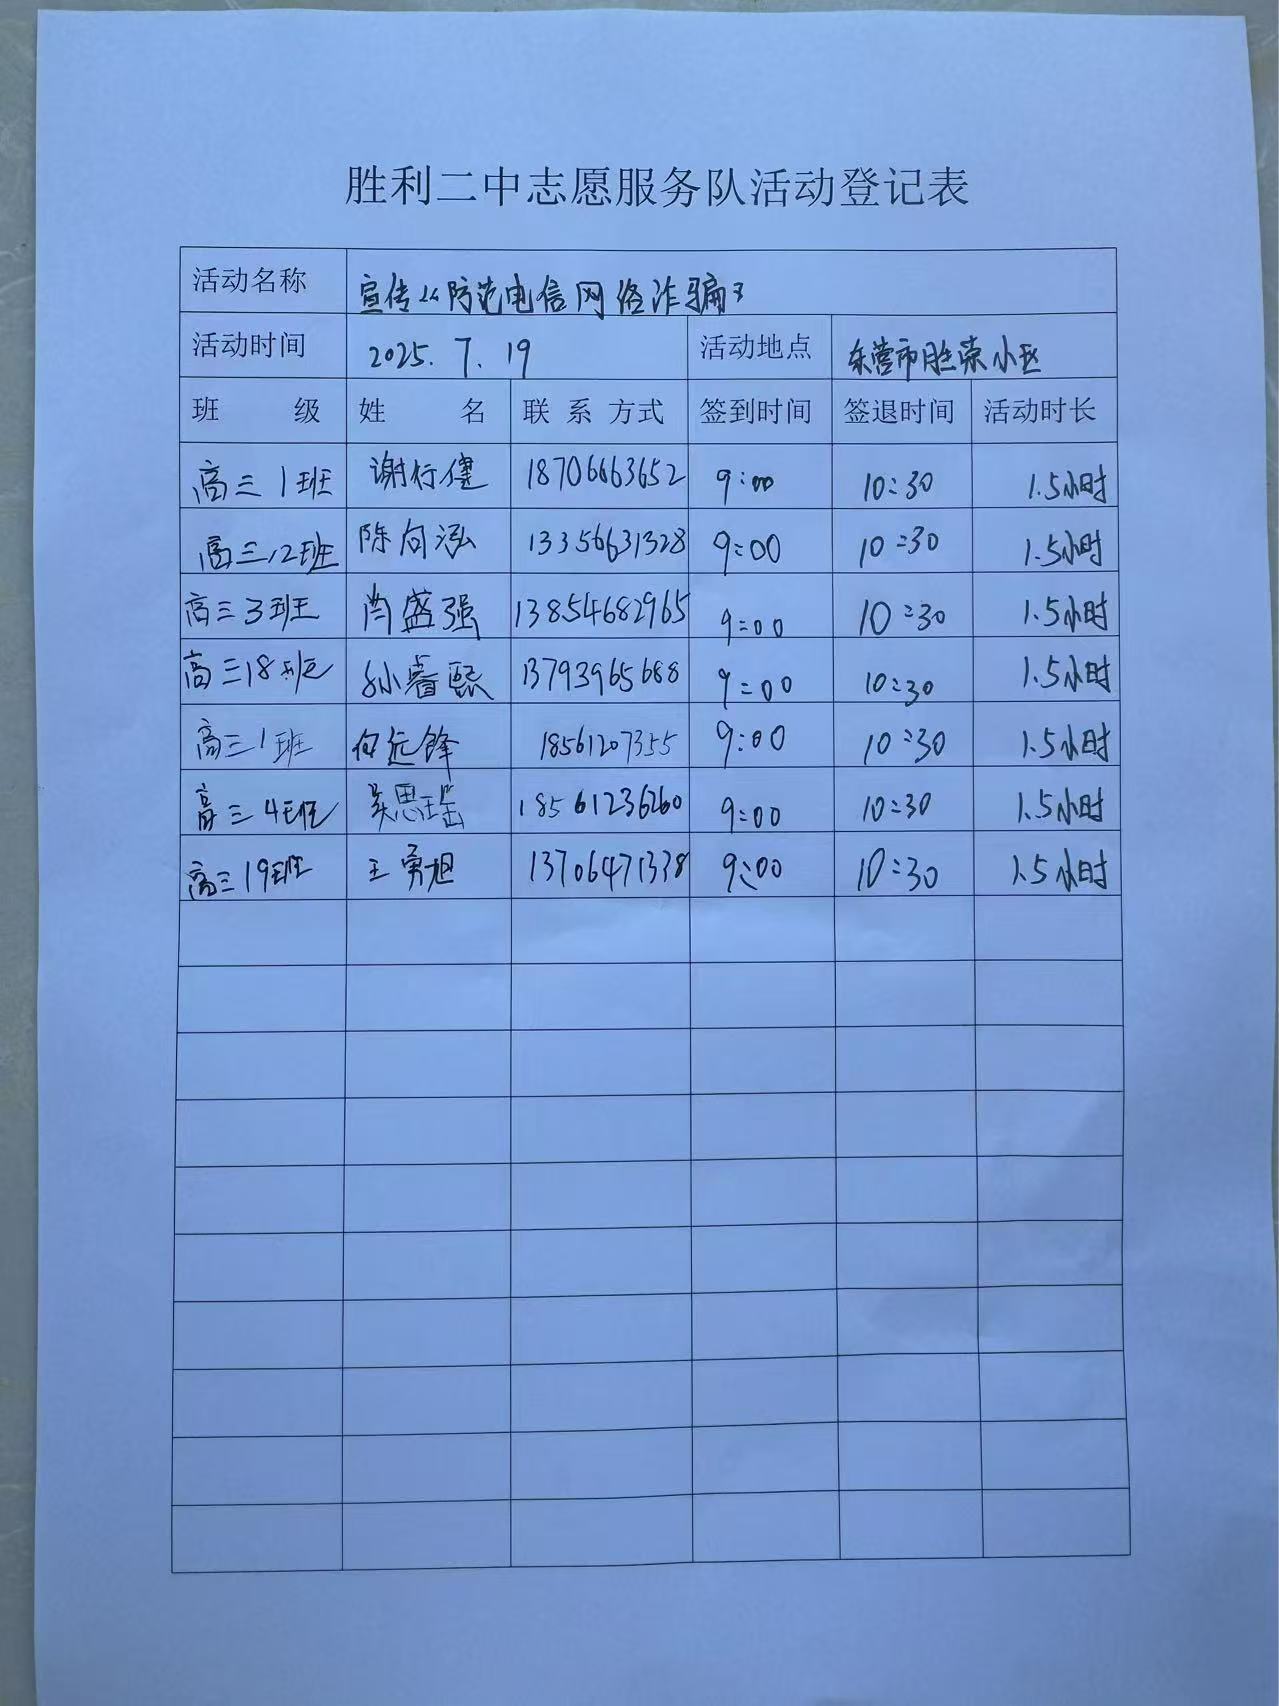 胜利二中志愿服务队活动登记表
活动名称 宣传《防范电信网络诈骗》
活动时间 2025.7.19 活动地点 东营市胜荣小区
班 级 姓 名 联系方式 签到时间 签退时间 活动时长
高三1班 谢行健 18706663652 9:00 10:30 1.5小时
高三12班 陈向泓 13356631328 9:00 10:30 1.5小时
高三3班 肖盛强 13854682965 9:00 10:30 1.5小时
高三18班 孙睿熙 13793965688 9:00 10:30 1.5小时
高三1班 何远锋 18561207355 9:00 10:30 1.5小时
高三4班 吴思瑶 18561236260 9:00 10:30 1.5小时
高三19班 王勇旭 13706471338 9:00 10:30 1.5小时